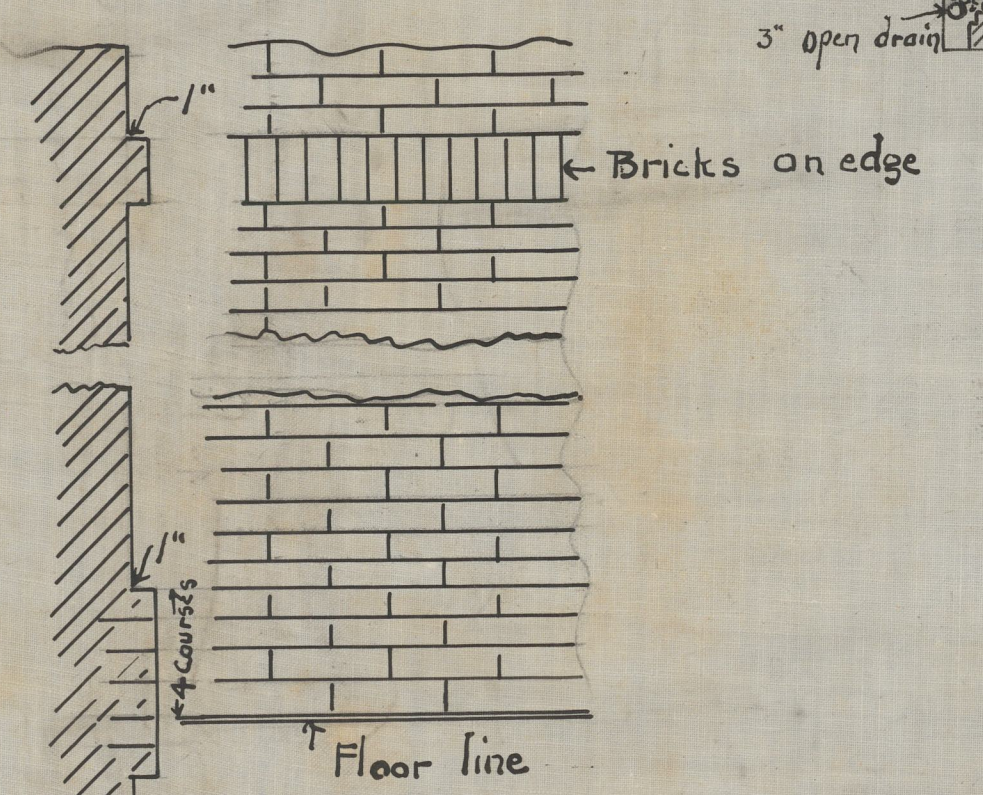 3" open drain
1"
Bricks on edge
1"
4 Courses
Floor line